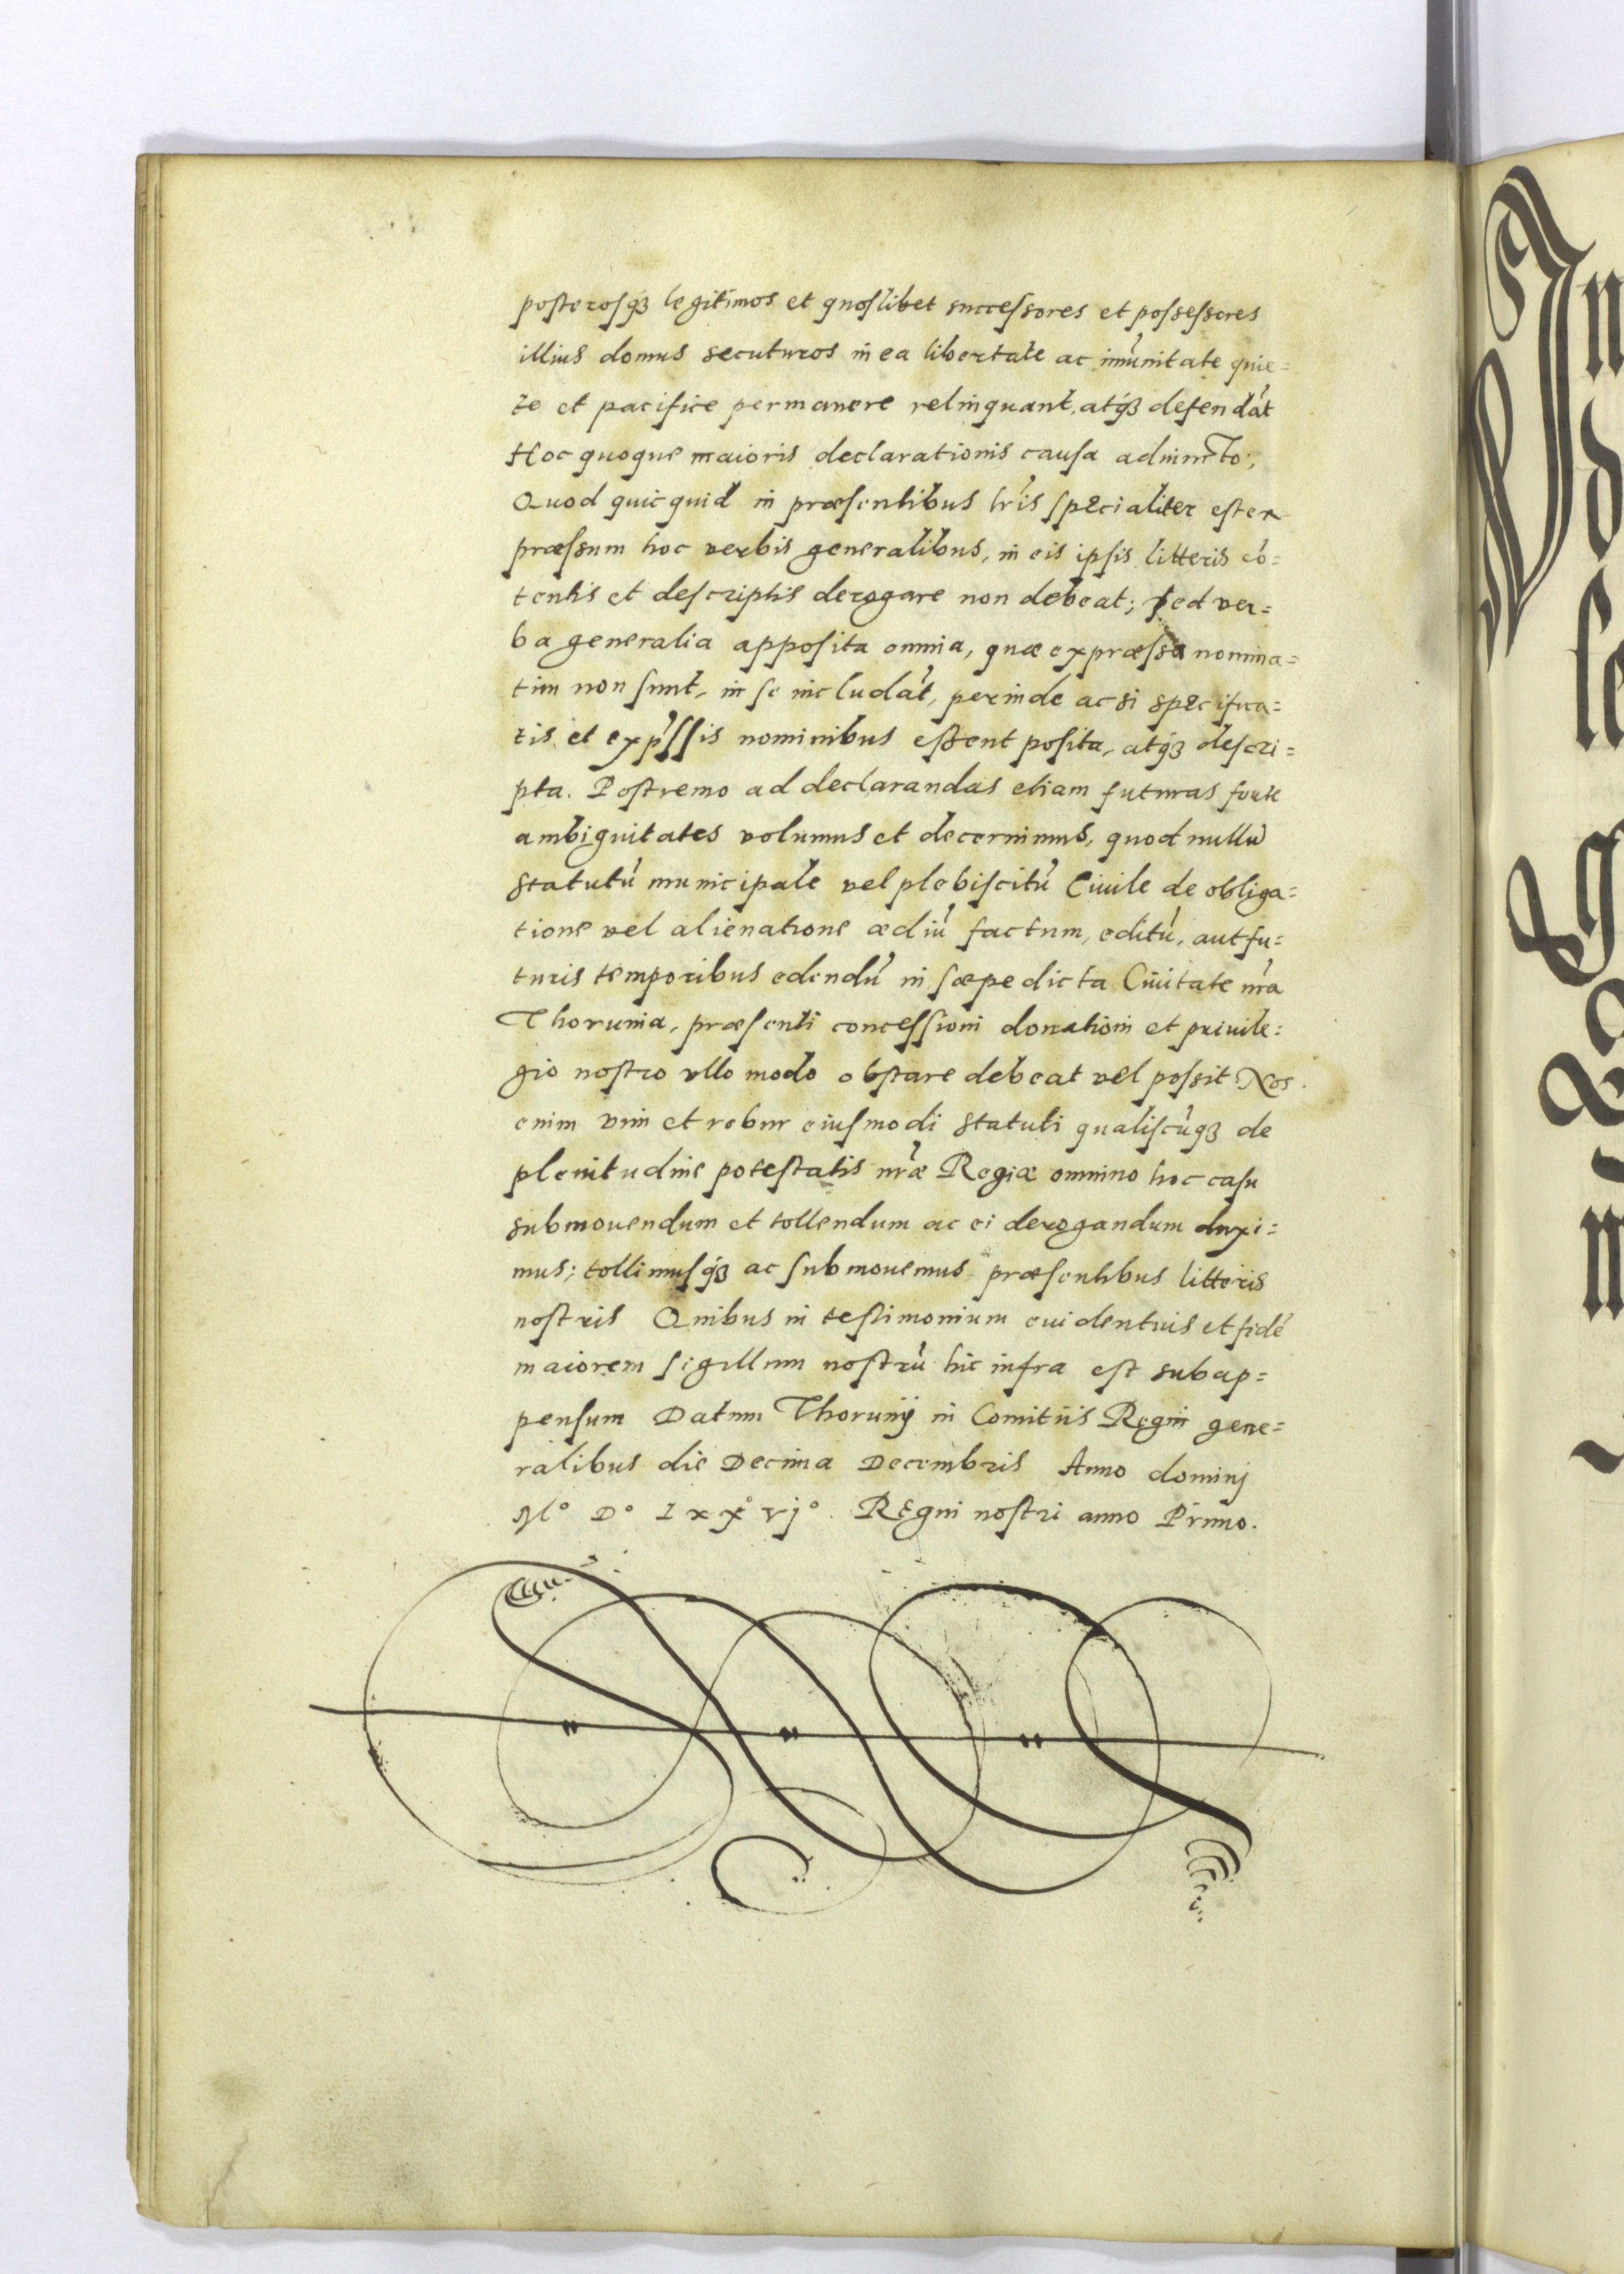 posterosq́ꝫ legitimos et quoslibet successores et possessores
illius domus secuturos in ea libertate ac im̃unitate quie=
te et pacifice permanere relinquant, atq́ꝫ defendãt
Hoc quoque maioris declarationis causa
Quod quicquid in præsentibus lr̃is specialiter est ex
præssum hoc verbis generalibus, in eis ipsis litteris cõ=
tentis et descriptis derogare non debeat; sed ver=
ba generalia apposita omnia, quæ expræssa nomina=
tim non sunt, in se includãt, perinde ac si specifica=
tis et exp̃ssis nominibus essent posita, atq́ꝫ descri=
pta. Postremo ad declarandas etiam futuras forte
ambiguitates volumus et decernimus, quod nullũ
statutũ municipale vel plebiscitũ Ciuile de obliga=
tione vel alienatione ædiũ factum, editũ, aut fu=
turis temporibus edendũ in sæpe dicta Ciuitate nr̃a
Thorunia, præsenti concessioni donationi et priuile=
gio nostro vllo modo obstare debeat vel possit Nos
enim vim et robur eiusmodi statuti qualiscũqꝫ de
plenitudine potestatis nr̃æ Regiæ omnino hoc casu
submouendum et tollendum ac ei derogandum duxi=
mus; tollimusq́ꝫ ac submouemus præsentibus litteris
nostris Quibus in testimonium euidentius et fidẽ
maiorem sigillum nostrũ hic infra est subap=
pensum Datum Thorunij in Comitiis Regni gene=
ralibus die Decima Decembris Anno dominj
M° D° Lxx° vj°. Regni nostri anno Primo.